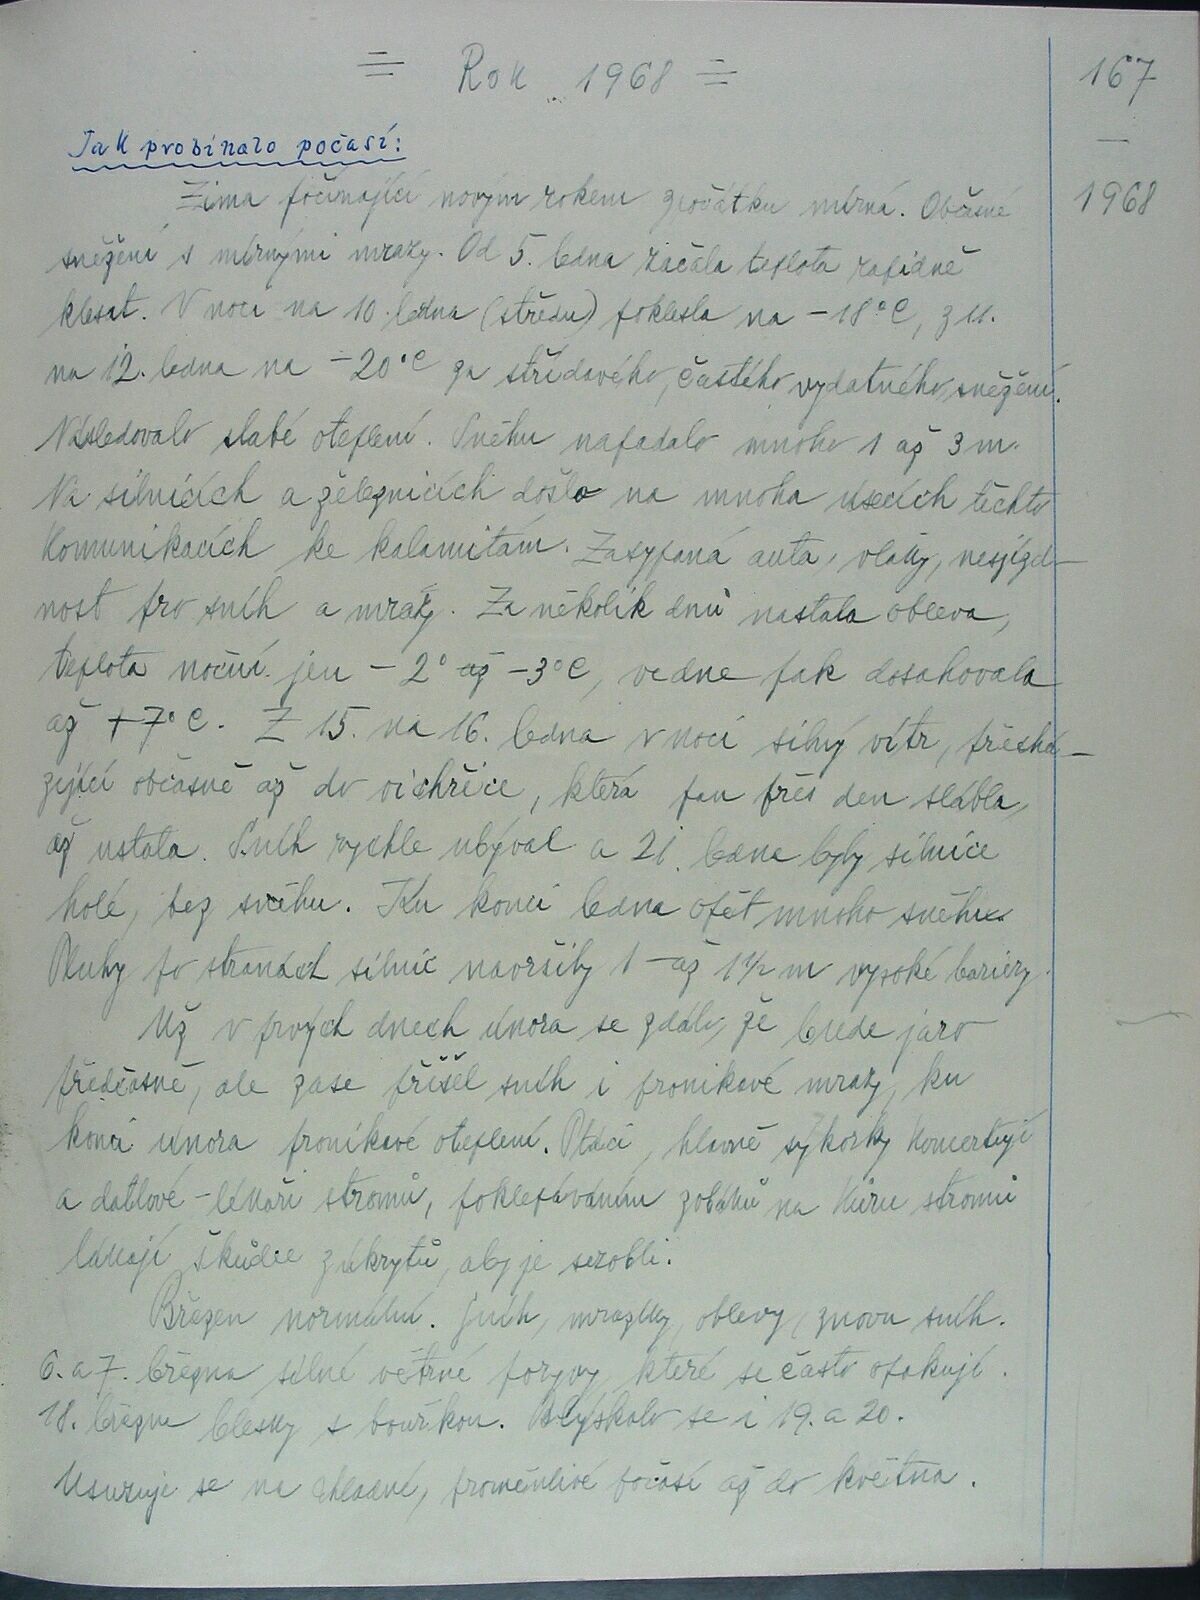 = Rok 1968 =
167
—
1968
Jak probíhalo počasí:
Zima počínající novým rokem zpočátku mírná. Občasné
sněžení s mírnými mrazy. Od 5. ledna začala teplota rapidně
klesat. V noci na 10. ledna (středu) poklesla na -18°C, z 11.
na 12. ledna na -20°C za střídavého, častého vydatného, sněžení.
Následovalo slabé oteplení. Sněhu napadalo mnoho 1 až 3 m.
Na silnicích a železnicích došlo na mnoha úsecích těchto
komunikacích ke kalamitám. Zasypaná auta, vlaky, nesjízd-
nost pro sníh a mrazy. Za několik dnů nastala obleva,
teplota noční jen -2° až -3°C, ve dne pak dosahovala
až +7°C. Z 15. na 16. ledna v noci silný vítr, přechá-
zející občasně až do vichřice, která pan přes den slábla,
až ustala. Sníh rychle ubýval a 21. ledna byly silnice
holé, bez sněhu. Ku konci ledna opět mnoho sněhu.
Pluhy po stranách silnic navršily 1 - až 1 1/2 m vysoké bariery.
Už v prvých dnech února se zdálo, že bude jaro
předčasně, ale zase přišel sníh i pronikavé mrazy, ku
konci února pronikavé oteplení. Ptáci, hlavně sýkorky koncertují
a datlové - lékaři stromů, poklepáváním zobáků na kůru stromů
lákají škůdce z úkrytů, aby je sezobli.
Březen normální. Sníh, mrazíky, oblevy, znovu sníh.
6. a 7. března silné větrné poryvy, které se často opakují.
18. března blesky s bouřkou. Blýskalo se i 19. a 20.
Usuzuje se na chladné, proměnlivé počasí až do května.